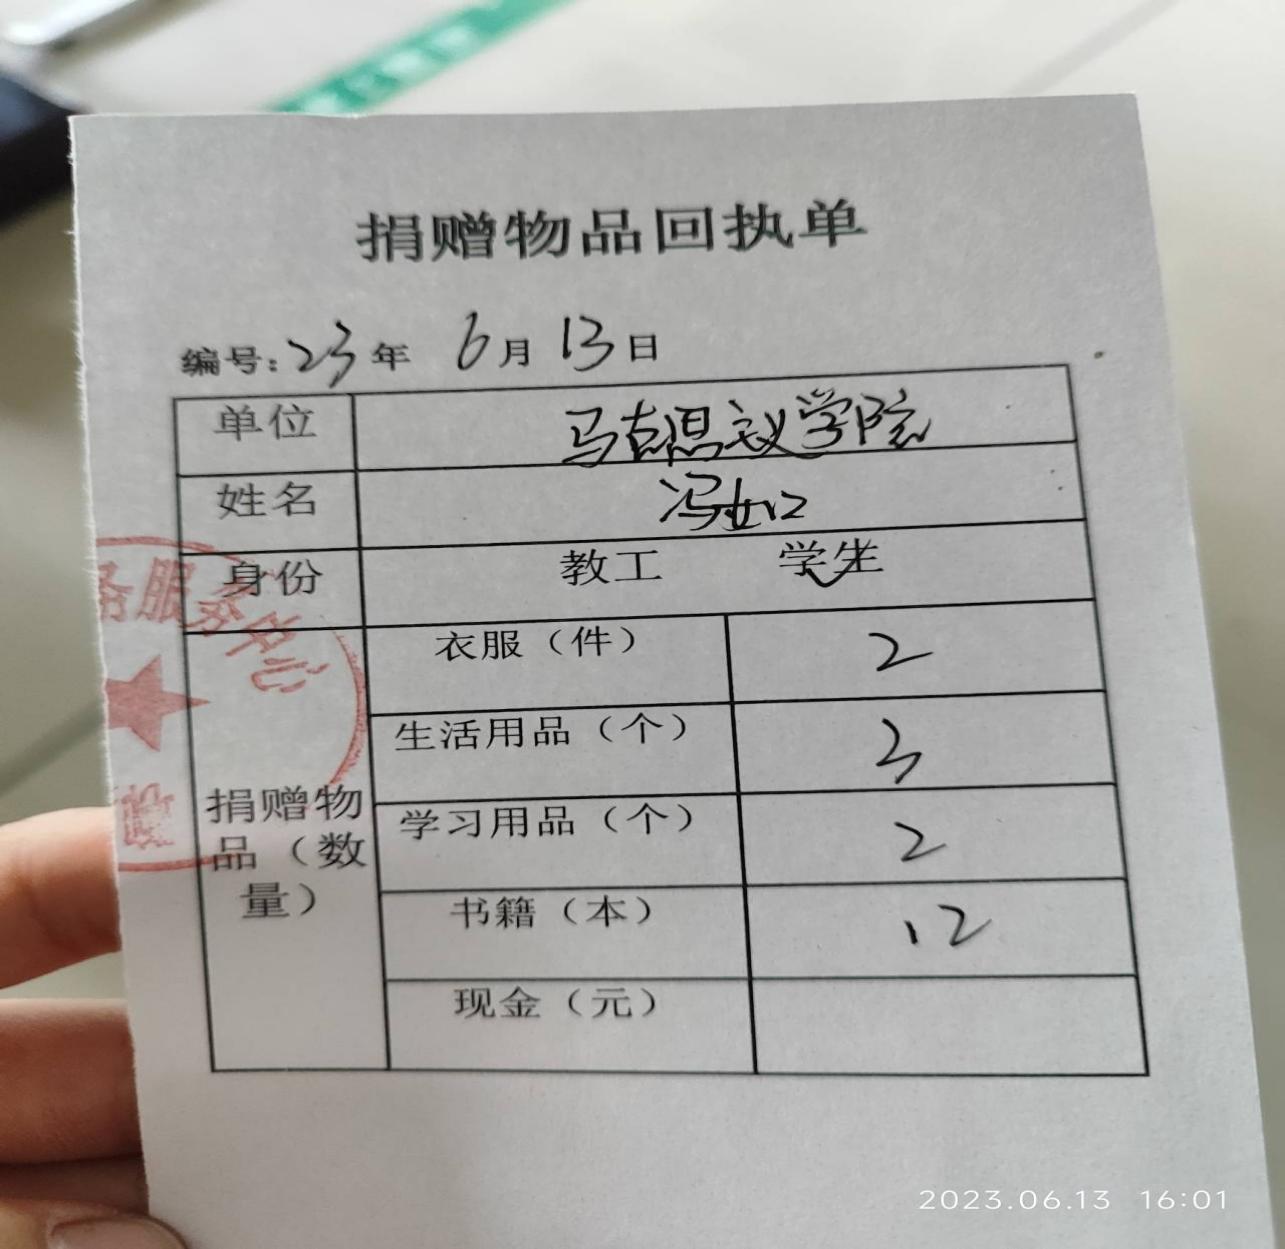 捐赠物品回执单
编号:23年 6月 13日
单位 马克思主义学院
姓名 冯如
身份 教工 学生
捐赠物品（数量）
衣服（件） 2
生活用品（个） 3
学习用品（个） 2
书籍（本） 12
现金（元）
务服务中心
2023.06.13 16:01